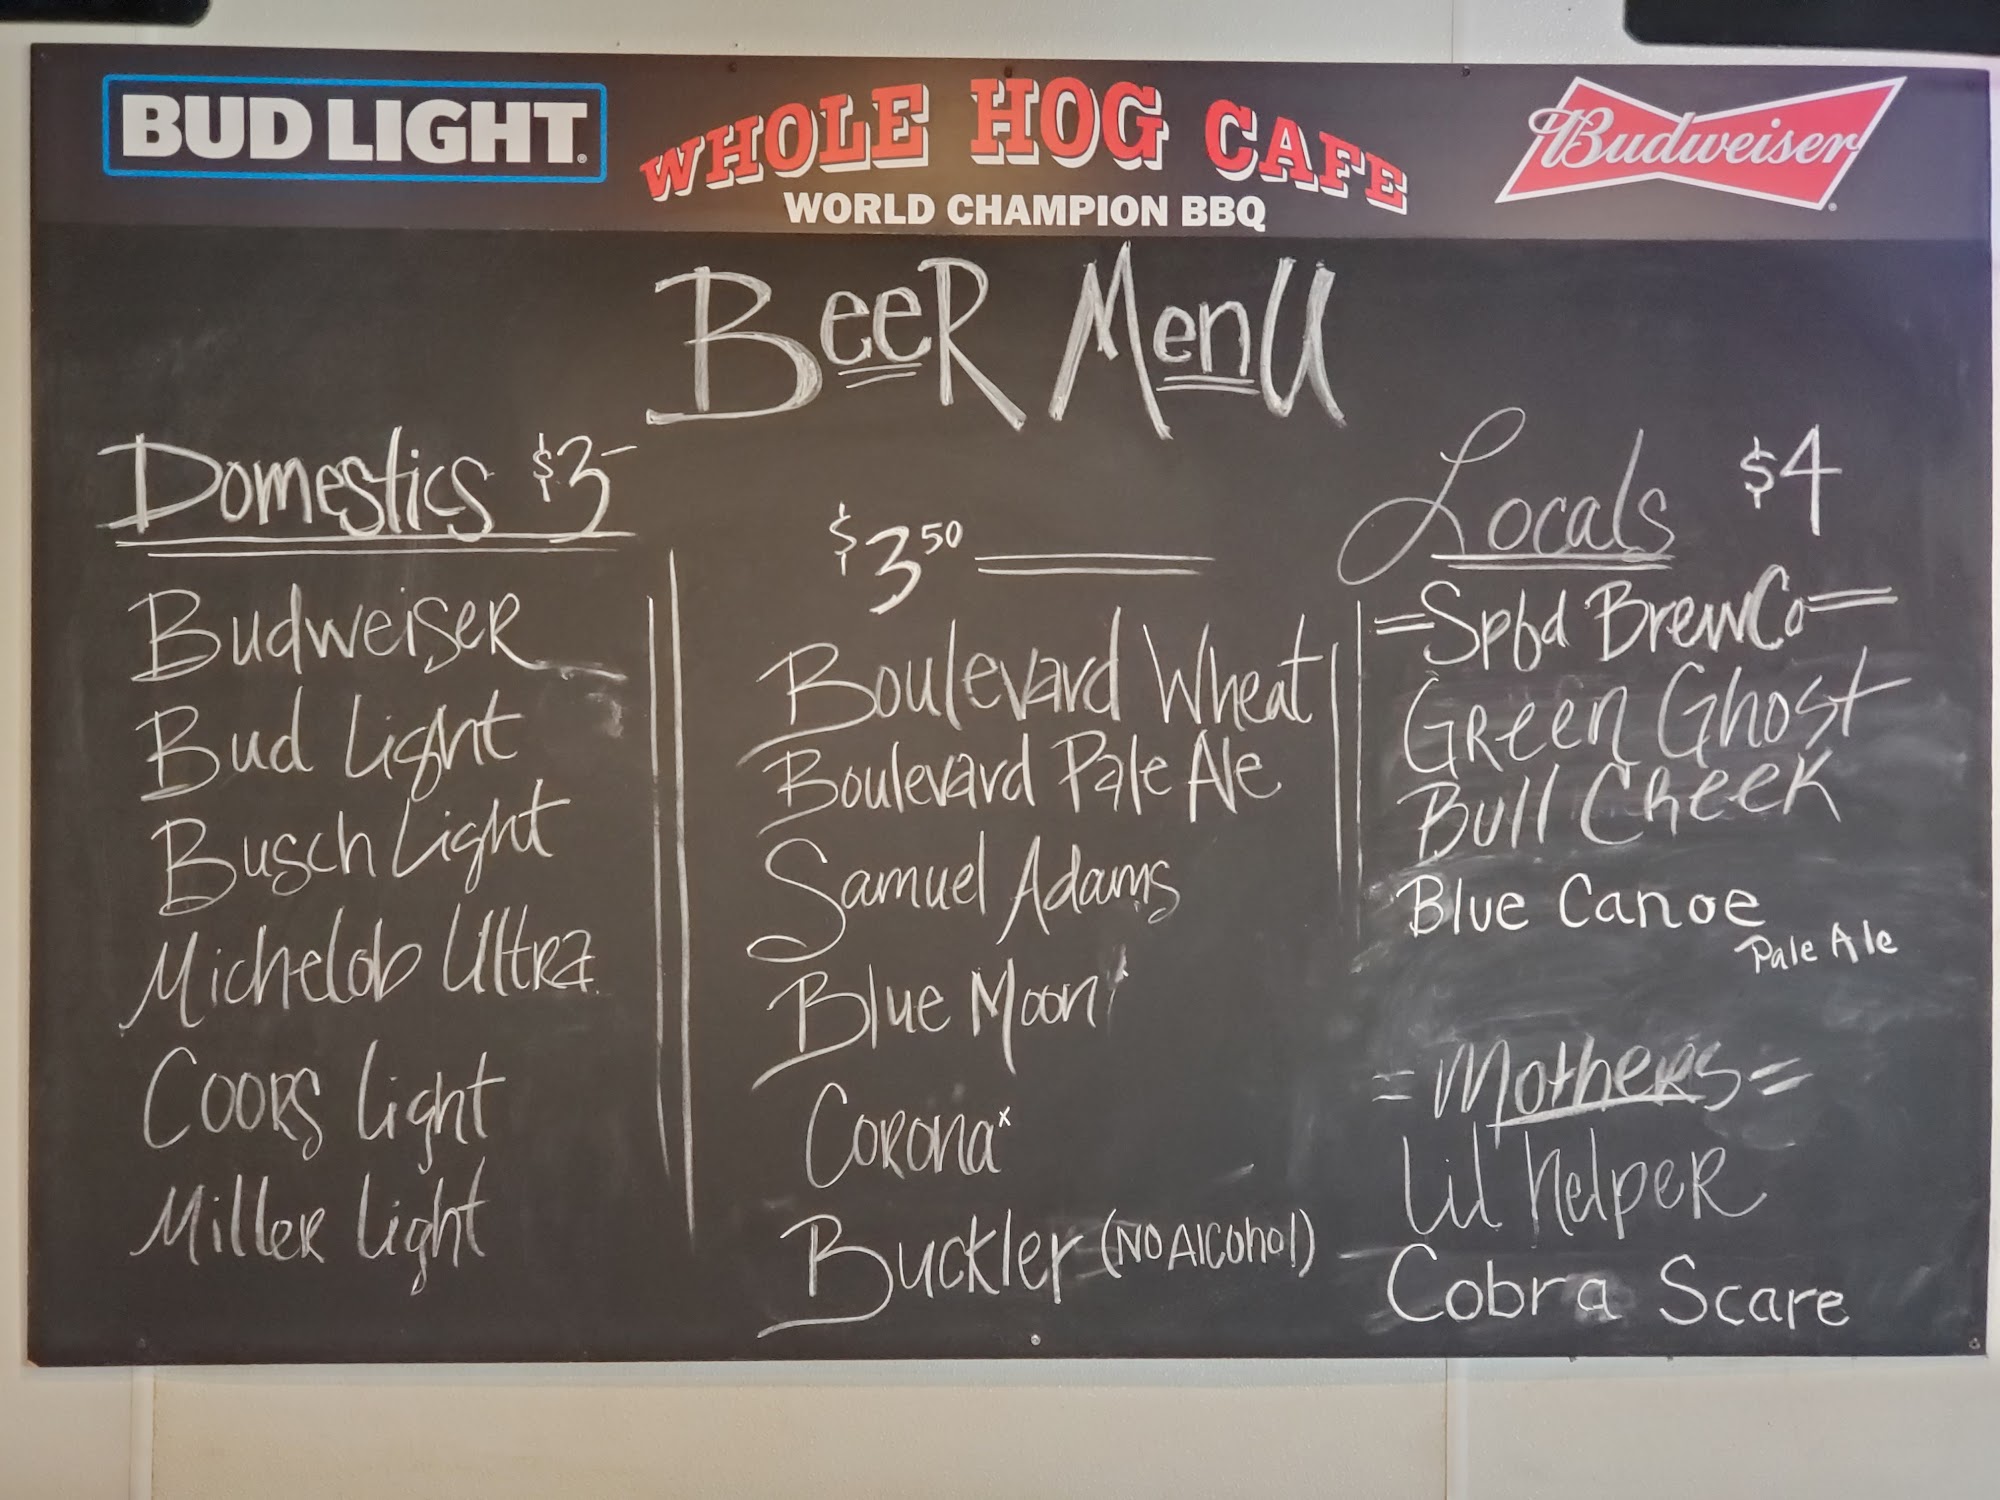 BUD LIGHT
WHOLE HOG CAFE
WORLD CHAMPION BBQ
Budweiser
BeeR MenU
Domestics $3
Budweiser
Bud Light
Busch Light
Michelob Ultra
Coors Light
Miller Light
$3 50
Boulevard Wheat
Boulevard Pale Ale
Samuel Adams
Blue Moon
Corona
Buckler (No Alcohol)
Locals $4
=Spfd BrewCo=
Green Ghost
Bull Creek
Blue Canoe
Pale Ale
=Mothers=
Lil helper
Cobra Scare